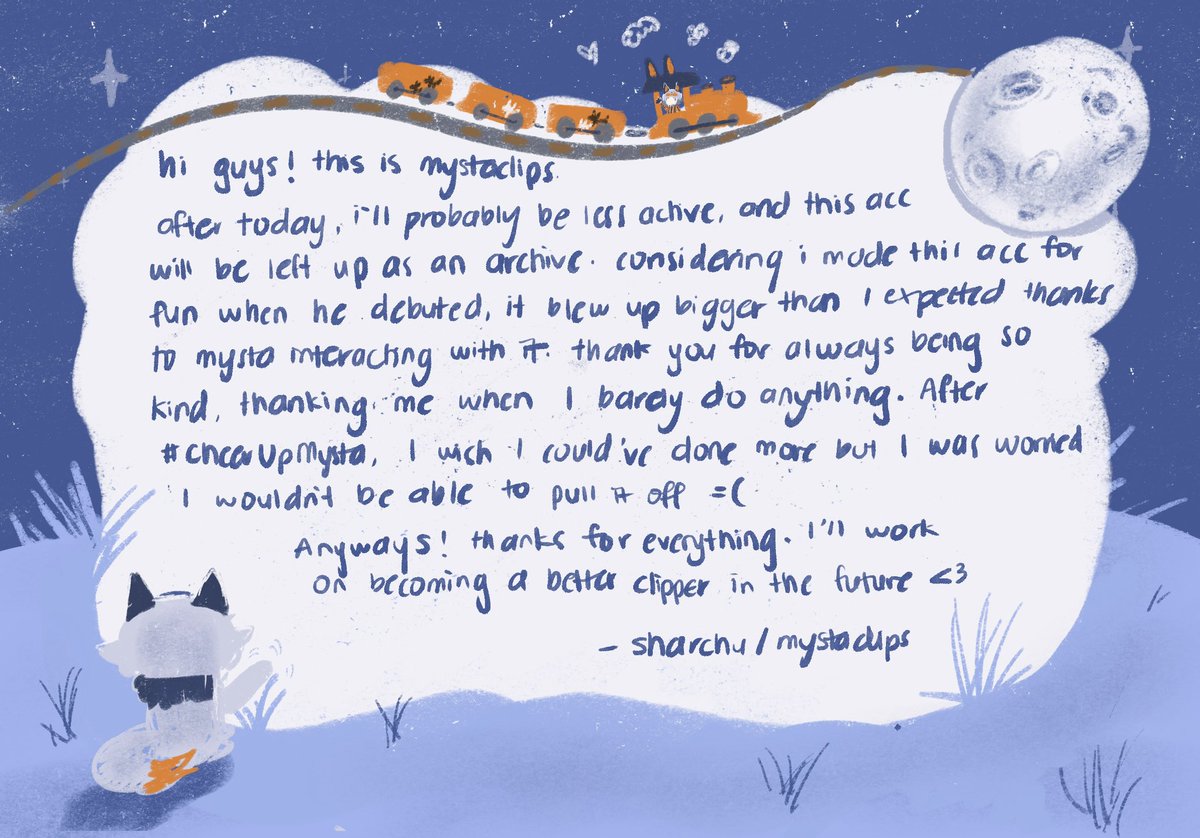 hi guys! this is mystaclips.
after today, i'll probably be less active, and this acc
will be left up as an archive. considering i made this acc for
fun when he debuted, it blew up bigger than I expected thanks
to mysta interacting with it. thank you for always being so
kind, thanking me when I barely do anything. After
#CheerUpMysta, I wish I could've done more but I was worried
I wouldn't be able to pull it off =(
Anyways! thanks for everything. I'll work
on becoming a better clipper in the future <3
- sharchu / mystaclips